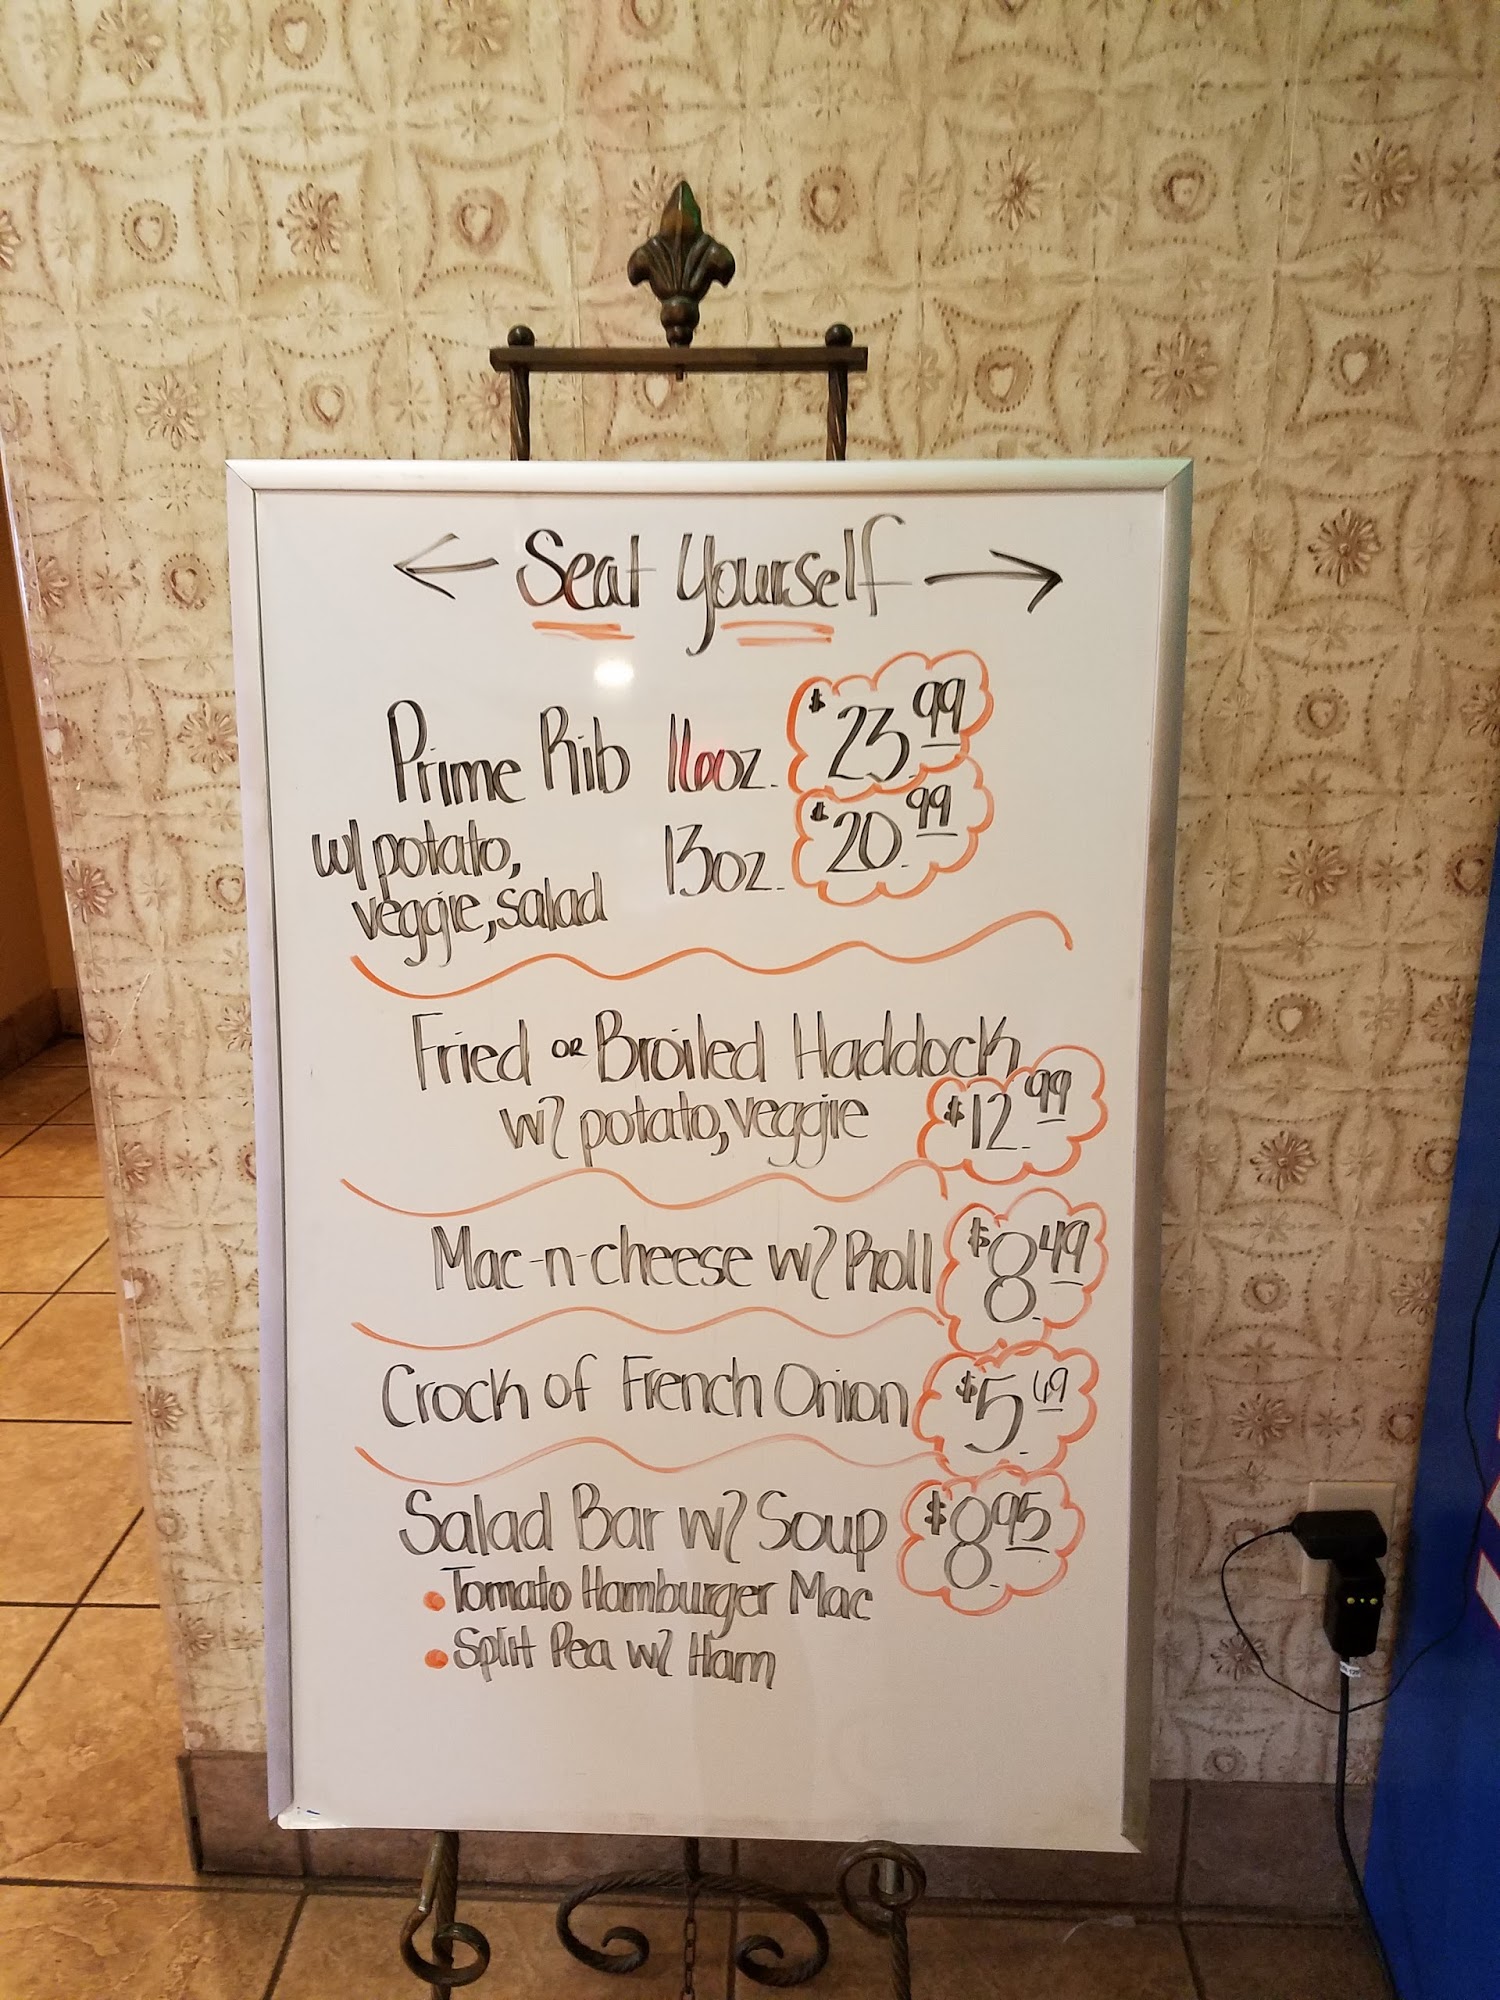 ← Seat Yourself →
Prime Rib 16oz. $23.99
w/ potato, 13oz. $20.99
veggie, salad
Fried or Broiled Haddock
w/ potato, veggie $12.99
Mac-n-cheese w/ Roll $8.49
Crock of French Onion $5.49
Salad Bar w/ Soup $8.95
• Tomato Hamburger Mac
• Split Pea w/ Ham